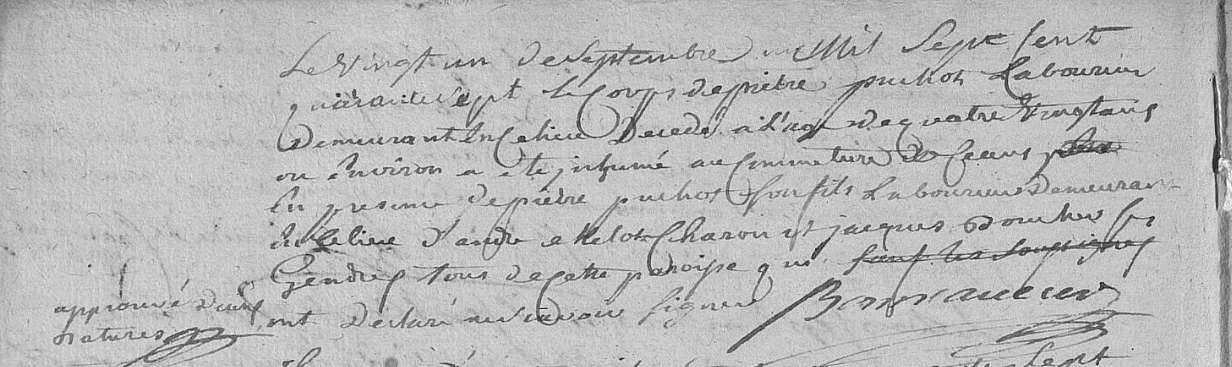 Le Vingt un de Septembre Mil Sept Cent
quarante Sept le Corps de piètre puchot Laboureur
demeurant En Celieu Decedé a l'age de quatre Vingt ans
ou Environ a été jnhumé au Cimmetiere de Ceans
En presence de piètre puchot Son fils Laboureur demeurant
En Celieu d'andre Charon et jacques Boucher Ses
Gendres tous de cette paroisse qui sauf les soussignes
ont declaré ne scavoir signer
approuvé deux
ratures
Sept